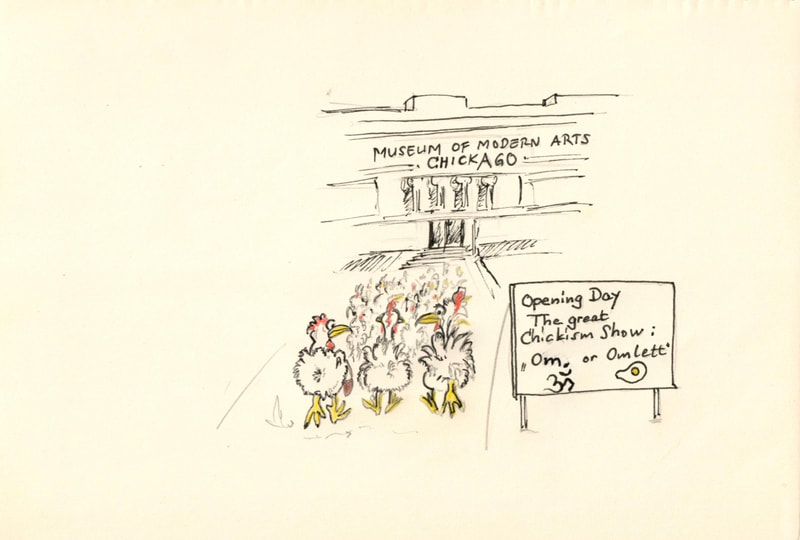 MUSEUM OF MODERN ARTS
CHICKAGO
Opening Day
The great
Chickism Show:
„Om. or Omlett"
ॐ